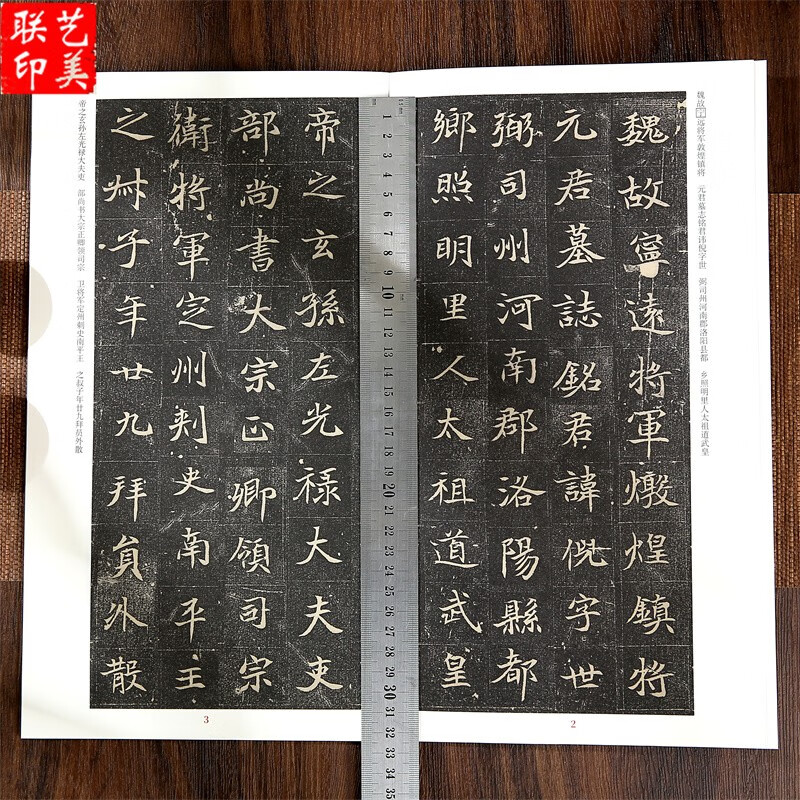 艺美
联印
魏故宁远将军敦煌镇将 元君墓志铭君讳倪字世 弼司州河南郡洛阳县都 乡照明里人太祖道武皇
魏故寧遠將軍燉煌鎮將
元君墓誌銘君諱倪字世
弼司州河南郡洛陽縣都
鄉照明里人太祖道武皇
2
1
2
3
4
5
6
7
8
9
10
11
12
13
14
15
16
17
18
19
20
21
22
23
24
25
26
27
28
29
30
31
32
33
34
35
帝之玄孫左光祿大夫吏
部尚書大宗正卿領司宗
衛將軍定州刺史南平王
之叔子年廿九拜員外散
3
帝之玄孙左光禄大夫吏 部尚书大宗正卿领司宗 卫将军定州刺史南平王 之叔子年廿九拜员外散